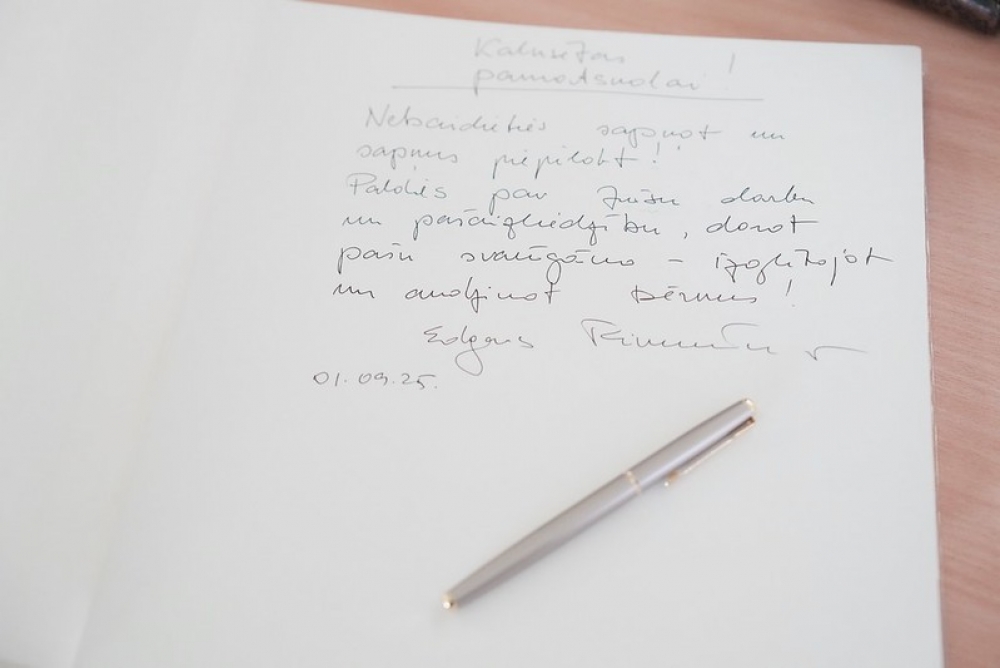 Kalnsētas
pamatskolai !
Nebaidieties sapņot un
sapņus piepildīt!
Paldies par Jūsu darbu
un pašaizliedzību, darot
pašu svarīgāko - izglītojot
un audzinot bērnus!
Edgars Rinkēvičs
01.09.25.